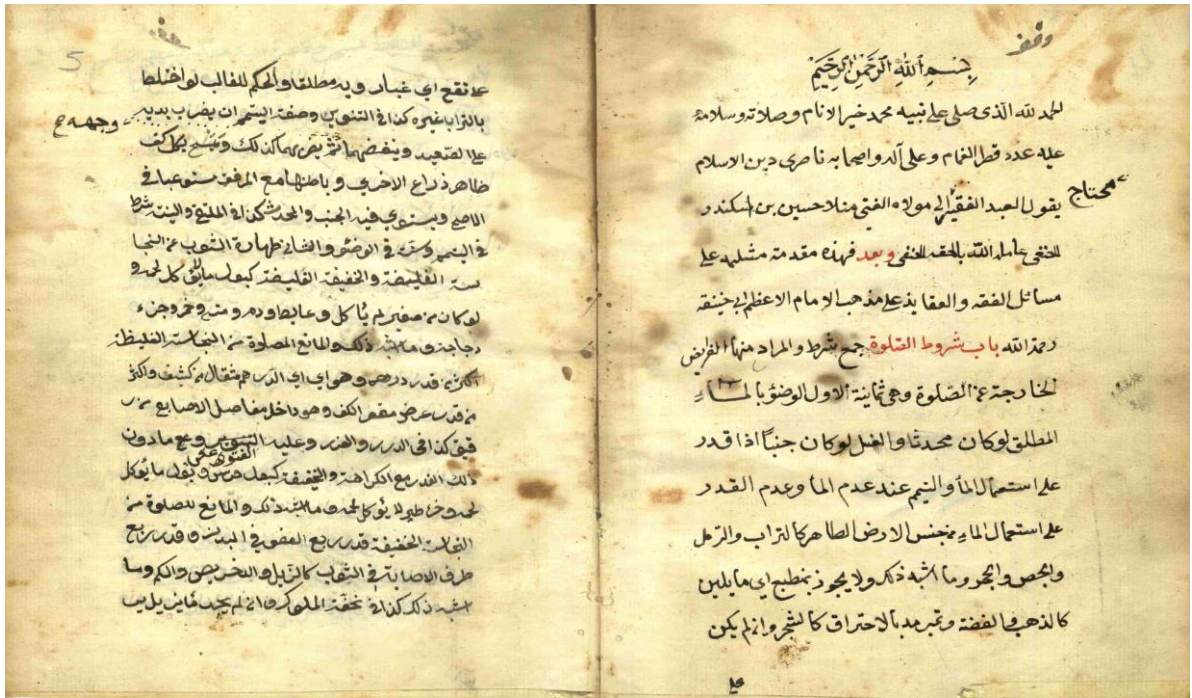 وقف
بسم الله الرحمن الرحيم
الحمد لله الذى صلى على نبيه محمد خير الانام وصلاته وسلامه
عليه عدد قطر الغمام وعلى آله واصحابه ناصرى دين الاسلام
يقول العبد الفقير الى مولاه الغنى منلا حسين بن اسكندر
محتاج
الحنفى عامله الله بلطفه الخفى وبعد فهذه مقدمة مشتملة على
مسائل الفقه والعقايد على مذهب الامام الاعظم ابى حنيفة
رحمة الله باب شروط الصلوة جمع شرط والمراد منها الفرائض
الخارجة عن الصلوة وهى ثمانية الاول الوضؤ بالماء
المطلق لو كان محدثا والغسل لو كان جنباً اذا قدر
على استعمال المأ والتيمم عند عدم المأ وعدم القدر
على استعمال الماء من جنس الارض الطاهر كالتراب والرمل
والجص والحجر وما اشبه ذلك ولا يجوز بمنطبع اى ما يلين
كالذهب والفضة وبترمد بالاحتراق كالشجر وان لم يكن
على
5
على نقع اى غبار وبه مطلقا والحكم للغالب لو اختلط
بالتراب غيره كذا فى التنوير وصفة التيمم ان يضرب بديه
وجهه
على الصعيد وينفضهما ثم يضربهما كذلك ويمسح بكل كف
ظاهر ذراع الاخرى وباطنها مع المرفق مستوعبا فى
الاصح ويستوى فيه الجنب والمحدث كذا فى الملتقى والنية شرط
فى التيمم وسنة فى الوضؤ والثانى طهارة الثوب عن النجا
سة الغليظة والخفيفة الغليظة كبول ما لا يؤكل لحمه و
لو كان من صغير لم يأكل وغايط ودم ومنى وخمر وخرء
دجاجة وما اشبه ذلك والمانع الصلوة من النجاسة الغليظة
اكثر من قدر درهم وهو اى الدرهم مثقال من كثيف واكثر
من قدر عرض مقعر الكف وهو داخل مفاصل الاصابع من ر
قيق كذا فى الدرر والغرر وعليه الفتوى
ذلك القدر مع الكراهة والخفيفة كبول فرس وبول ما يؤكل
لحمه وخرء طير لا يؤكل لحمه وما اشبه ذلك والمانع للصلوة من
النجاسة الخفيفة قدر ربع العضو فى البدن وقدر ربع
طرف الاصابة فى الثوب كالذيل والدخريص والكم وما
اشبه ذلك كذا فى تحفة الملوك وان لم يجد ما يزيل به